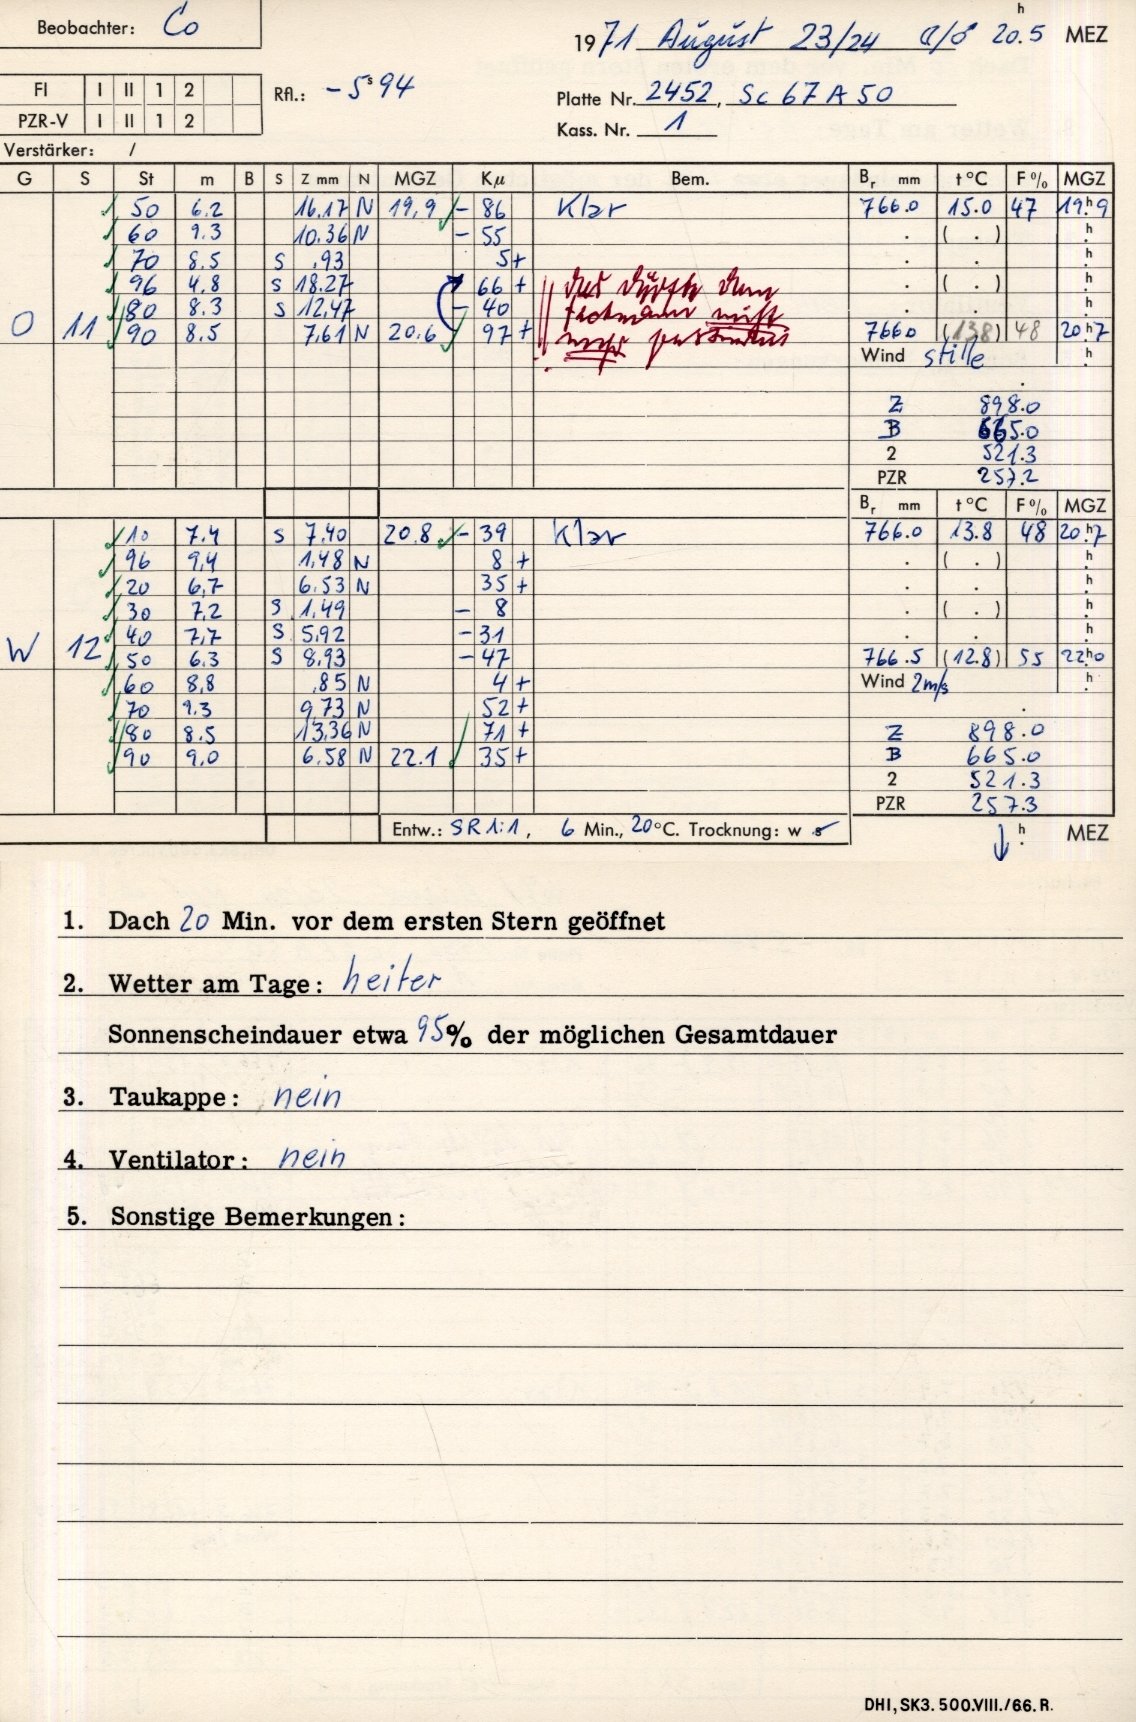 Beobachter: Co
1971 August 23/24 20.5 h MEZ
FI I II 1 2
PZR-V I II 1 2
Rfl.: - 5s94
Platte Nr. 2452, Sc 67 A 50
Kass. Nr. 1
Verstärker: /
G S St m B S Z mm N MGZ Kµ Bem. Br mm t °C F % MGZ
50 6.2 16.17 N 19,9 - 86 Klar 766.0 15.0 47 19h9
60 9.3 10.36 N - 55 . ( . ) h
70 8.5 S .93 5+ . . h
96 4.8 S 18.27 66 + das dürfte dem . ( . ) h
80 8.3 S 12,47 - 40 nicht . . h
O 11 90 8.5 7,61 N 20.6 97 + mehr passieren 766.0 (13.8) 48 20h7
Wind stille h
Z 898.0
B 665.0
2 521.3
PZR 257.2
Br mm t °C F % MGZ
10 7.4 S 7.40 20.8 - 39 Klar 766.0 13.8 48 20h7
96 9,4 1,48 N 8 + . ( . ) h
20 6,7 6.53 N 35 + . . h
30 7,2 S 1,49 - 8 . ( . ) h
40 7,7 S 5,92 - 31 . . h
W 12 50 6.3 S 8,93 - 47 766.5 (12.8) 55 22h0
60 8,8 .85 N 4 + Wind 2m/s h
70 9.3 9,73 N 52 +
80 8.5 13,36 N 71 + Z 898.0
90 9,0 6.58 N 22.1 35 + B 665.0
2 521.3
PZR 257.3
Entw.: SR 1:1, 6 Min., 20 °C. Trocknung: w s h MEZ
1. Dach 20 Min. vor dem ersten Stern geöffnet
2. Wetter am Tage: heiter
Sonnenscheindauer etwa 95% der möglichen Gesamtdauer
3. Taukappe: nein
4. Ventilator: nein
5. Sonstige Bemerkungen:
DHI, SK3. 500. VIII./66. R.